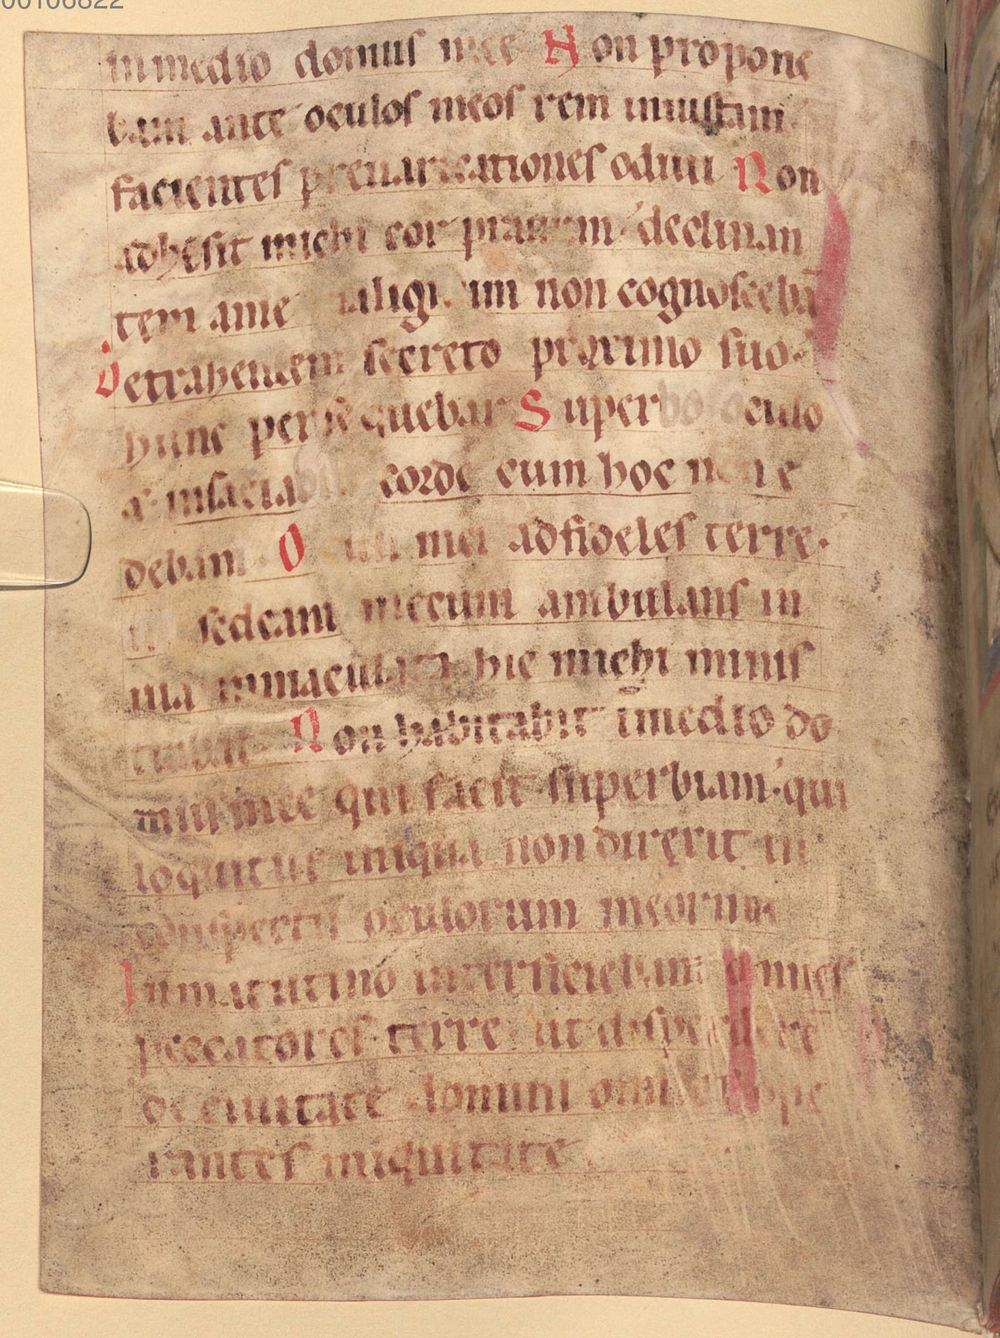 00106822
in medio domus mee Non propone
bam ante oculos meos rem iniustam
facientes preuaricationes odiui Non
adhesit michi cor prauum declinan
tem a me malignum non cognoscebā
Detrahentem secreto proximo suo
hunc persequebar Superbo oculo
& insaciabili corde cum hoc non e
debam Oculi mei ad fideles terre
ut sedeant mecum ambulans in
uia inmaculata hic michi minis
trabat Non habitabit i medio do
mus mee qui facit superbiam qui
loquitur iniqua non direxit in
conspectu oculorum meorum
In matutino interficiebam omnes
peccatores terre ut disperderē
de ciuitate domini omnes ope
rantes iniquitatē